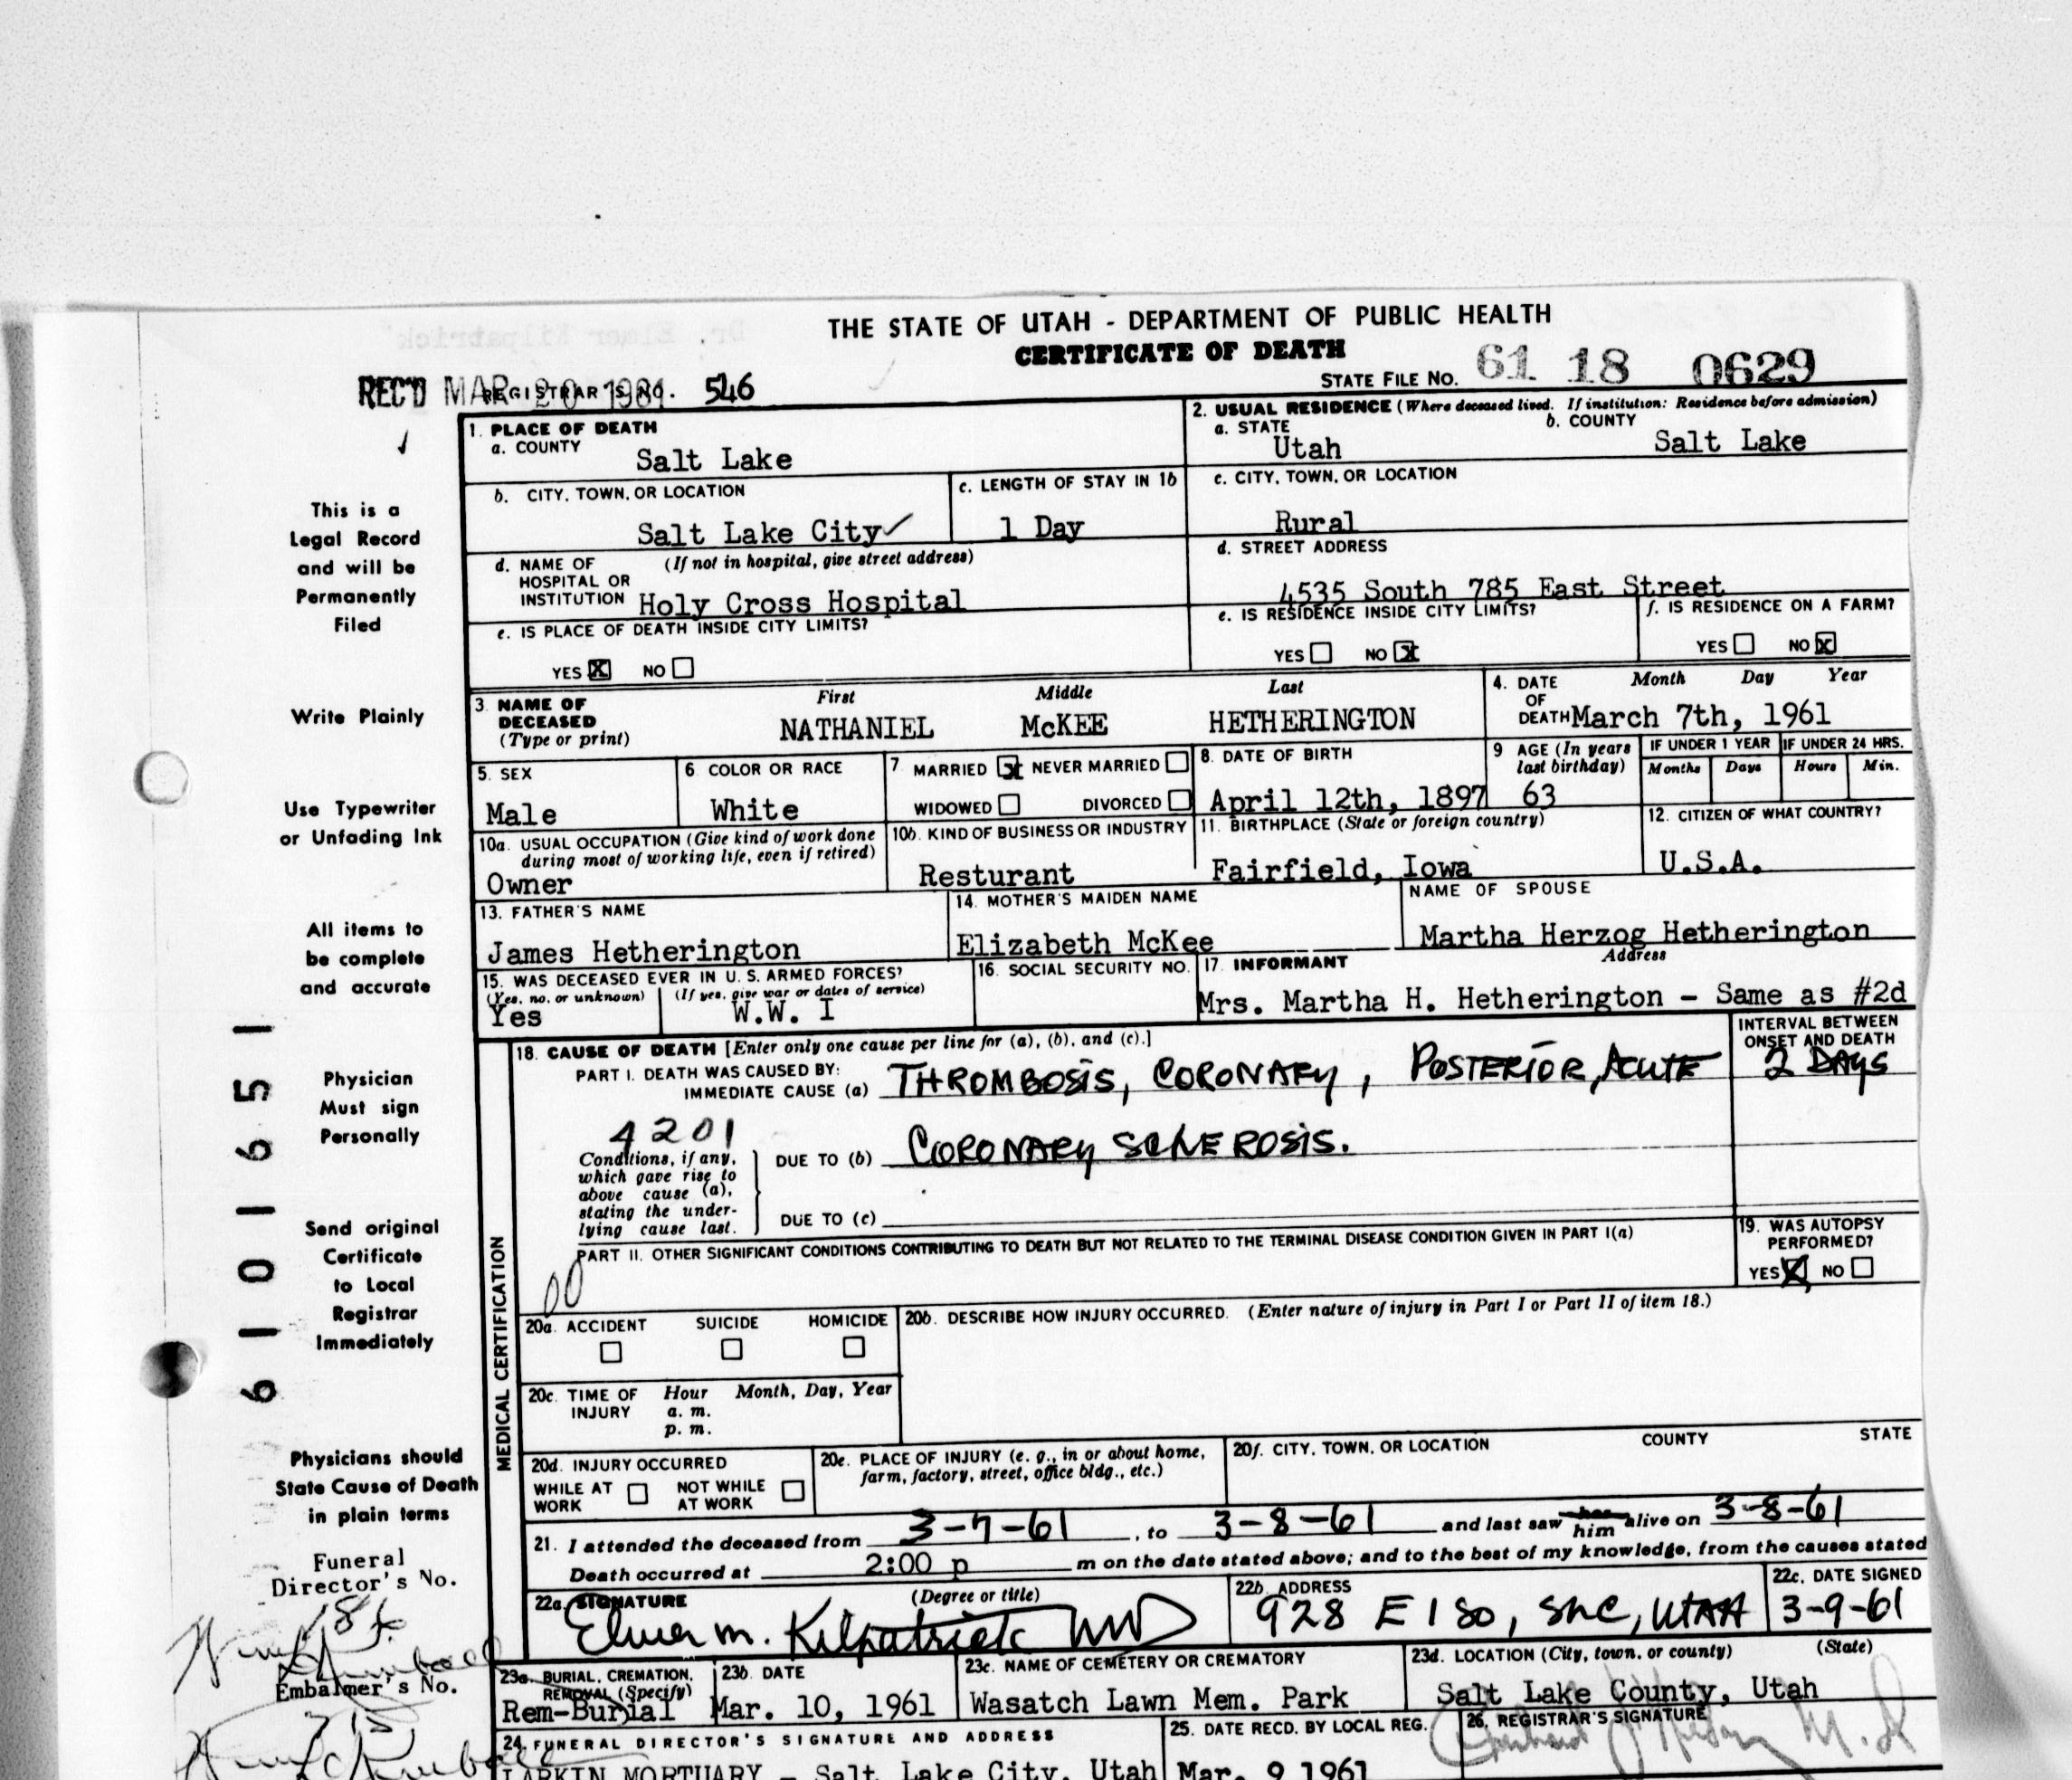 THE STATE OF UTAH - DEPARTMENT OF PUBLIC HEALTH
CERTIFICATE OF DEATH
REC'D MAR 20 1961 REGISTRAR'S NO. 546
STATE FILE NO. 61 18 0629
1. PLACE OF DEATH
a. COUNTY
Salt Lake
2. USUAL RESIDENCE (Where deceased lived. If institution: Residence before admission)
a. STATE
Utah
b. COUNTY
Salt Lake
b. CITY, TOWN, OR LOCATION
Salt Lake City
c. LENGTH OF STAY IN 1b
1 Day
c. CITY, TOWN, OR LOCATION
Rural
d. NAME OF HOSPITAL OR INSTITUTION (If not in hospital, give street address)
Holy Cross Hospital
d. STREET ADDRESS
4535 South 785 East Street
e. IS PLACE OF DEATH INSIDE CITY LIMITS?
YES X NO
e. IS RESIDENCE INSIDE CITY LIMITS?
YES NO X
f. IS RESIDENCE ON A FARM?
YES NO X
3. NAME OF DECEASED (Type or print)
First Middle Last
NATHANIEL McKEE HETHERINGTON
4. DATE OF DEATH
Month Day Year
March 7th, 1961
5. SEX
Male
6. COLOR OR RACE
White
7. MARRIED X NEVER MARRIED
WIDOWED DIVORCED
8. DATE OF BIRTH
April 12th, 1897
9 AGE (In years last birthday)
63
IF UNDER 1 YEAR
Months Days
IF UNDER 24 HRS.
Hours Min.
10a. USUAL OCCUPATION (Give kind of work done during most of working life, even if retired)
Owner
10b. KIND OF BUSINESS OR INDUSTRY
Resturant
11. BIRTHPLACE (State or foreign country)
Fairfield, Iowa
12. CITIZEN OF WHAT COUNTRY?
U.S.A.
13. FATHER'S NAME
James Hetherington
14. MOTHER'S MAIDEN NAME
Elizabeth McKee
NAME OF SPOUSE
Martha Herzog Hetherington
15. WAS DECEASED EVER IN U. S. ARMED FORCES?
(Yes, no, or unknown) (If yes, give war or dates of service)
Yes W.W. I
16. SOCIAL SECURITY NO.
17. INFORMANT Address
Mrs. Martha H. Hetherington - Same as #2d
MEDICAL CERTIFICATION
18. CAUSE OF DEATH [Enter only one cause per line for (a), (b), and (c).]
INTERVAL BETWEEN ONSET AND DEATH
PART I. DEATH WAS CAUSED BY:
IMMEDIATE CAUSE (a) THROMBOSIS, CORONARY, POSTERIOR, ACUTE
2 DAYS
4201
Conditions, if any,
which gave rise to
above cause (a),
stating the under-
lying cause last.
DUE TO (b) CORONARY SCLEROSIS.
DUE TO (c)
PART II. OTHER SIGNIFICANT CONDITIONS CONTRIBUTING TO DEATH BUT NOT RELATED TO THE TERMINAL DISEASE CONDITION GIVEN IN PART I(a)
00
19. WAS AUTOPSY PERFORMED?
YES X NO
20a. ACCIDENT SUICIDE HOMICIDE
20b. DESCRIBE HOW INJURY OCCURRED. (Enter nature of injury in Part I or Part II of item 18.)
20c. TIME OF INJURY
Hour Month, Day, Year
a. m.
p. m.
20d. INJURY OCCURRED
WHILE AT WORK NOT WHILE AT WORK
20e. PLACE OF INJURY (e. g., in or about home, farm, factory, street, office bldg., etc.)
20f. CITY, TOWN, OR LOCATION COUNTY STATE
21. I attended the deceased from 3-7-61, to 3-8-61 and last saw her him alive on 3-8-61
Death occurred at 2:00 p m on the date stated above; and to the best of my knowledge, from the causes stated
22a. SIGNATURE (Degree or title)
Elmer M. Kilpatrick MD
22b. ADDRESS
928 E 1 SO, SLC, UTAH
22c. DATE SIGNED
3-9-61
23a. BURIAL, CREMATION, REMOVAL (Specify)
Rem-Burial
23b. DATE
Mar. 10, 1961
23c. NAME OF CEMETERY OR CREMATORY
Wasatch Lawn Mem. Park
23d. LOCATION (City, town, or county) (State)
Salt Lake County, Utah
24. FUNERAL DIRECTOR'S SIGNATURE AND ADDRESS
LARKIN MORTUARY - Salt Lake City, Utah
25. DATE RECD. BY LOCAL REG.
Mar. 9 1961
26. REGISTRAR'S SIGNATURE
M.D
This is a
Legal Record
and will be
Permanently
Filed
Write Plainly
Use Typewriter
or Unfading Ink
All items to
be complete
and accurate
Physician
Must sign
Personally
Send original
Certificate
to Local
Registrar
Immediately
Physicians should
State Cause of Death
in plain terms
Funeral
Director's No.
Embalmer's No.
6101651
Dr. Elmer Kilpatrick